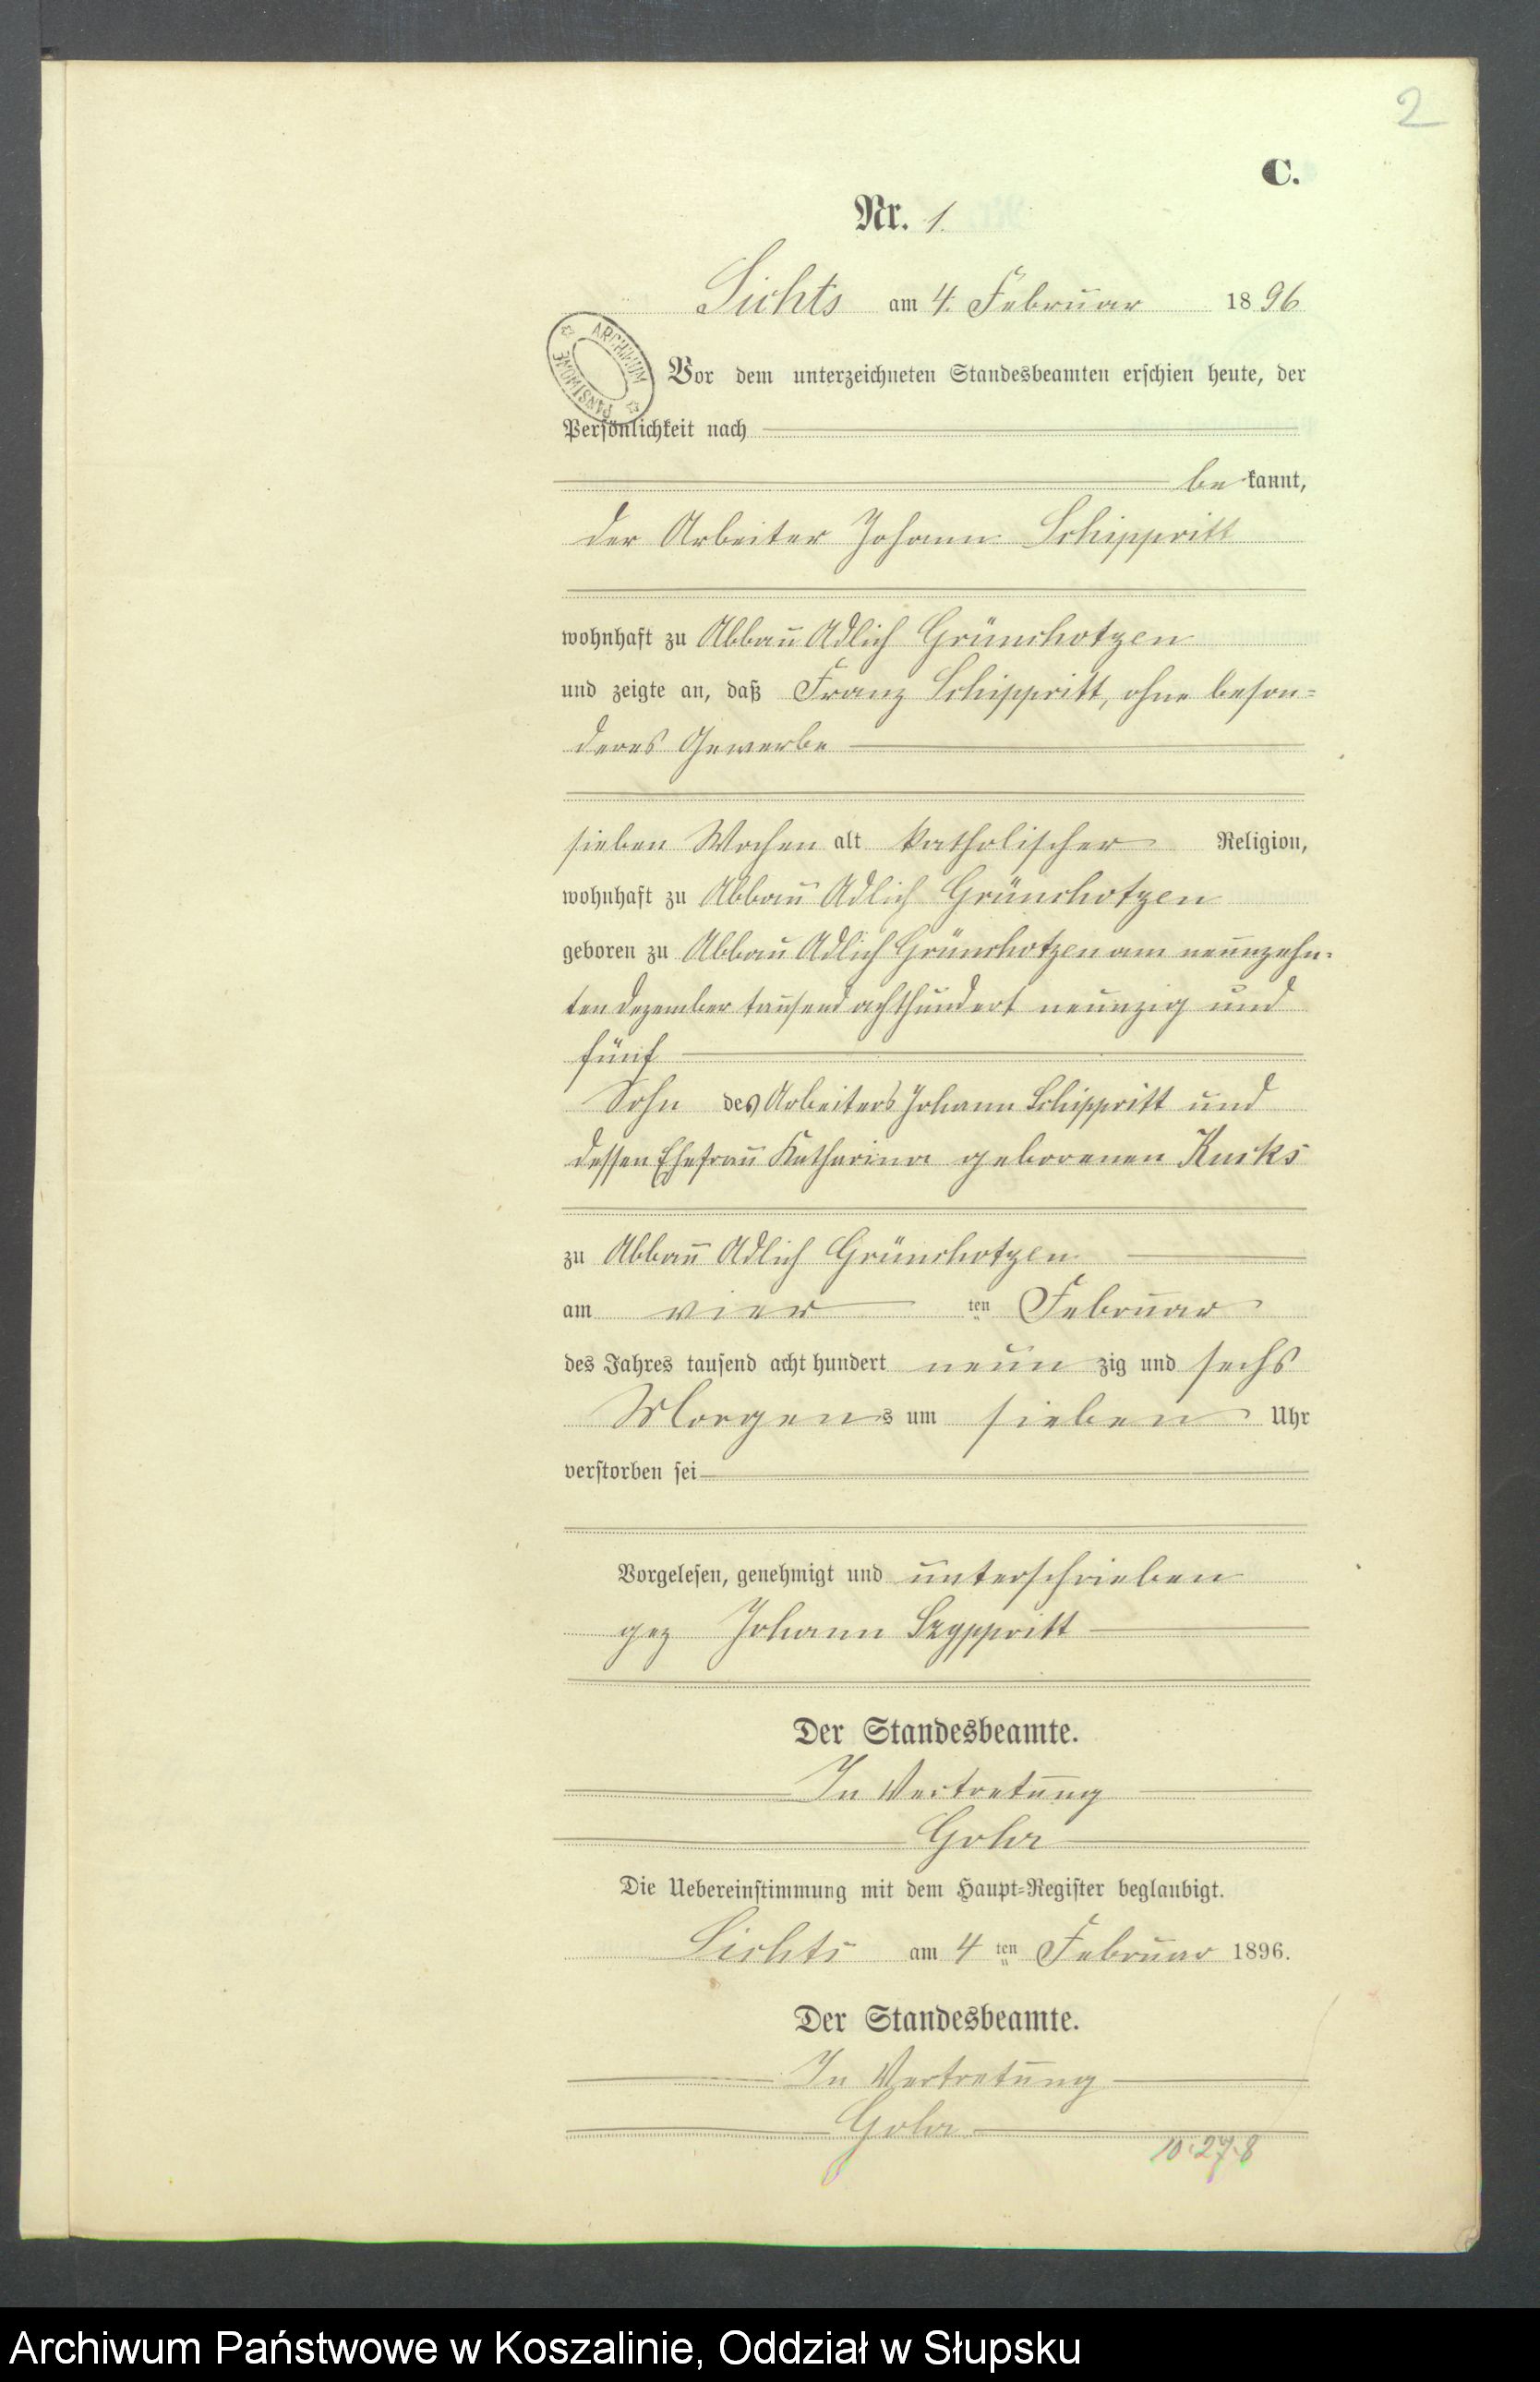 2
C.
Nr. 1.
Lichts am 4. Februar 1896
ARCHIWUM PAŃSTWOWE
Vor dem unterzeichneten Standesbeamten erschien heute, der
Persönlichkeit nach
be kannt,
der Arbeiter Johann Schippritt
wohnhaft zu Abbau Adlich Grünchotzen
und zeigte an, daß Franz Schippritt, ohne beson=
deres Gewerbe
sieben Wochen alt katholischer Religion,
wohnhaft zu Abbau Adlich Grünchotzen
geboren zu Abbau Adlich Grünchotzen am neunzehn-
ten Dezember tausend achthundert neunzig und
fünf
Sohn des Arbeiters Johann Schippritt und
dessen Ehefrau Katharina geborenen
zu Abbau Adlich Grünchotzen
am vier ten Februar
des Jahres tausend acht hundert neun zig und sechs
Morgens um sieben Uhr
verstorben sei
Vorgelesen, genehmigt und unterschrieben
gez Johann Szyppritt
Der Standesbeamte.
In Vertretung
Gohr
Die Uebereinstimmung mit dem Haupt=Register beglaubigt.
Lichts am 4 ten Februar 1896.
Der Standesbeamte.
In Vertretung
Gohr
10.27.8
Archiwum Państwowe w Koszalinie, Oddział w Słupsku